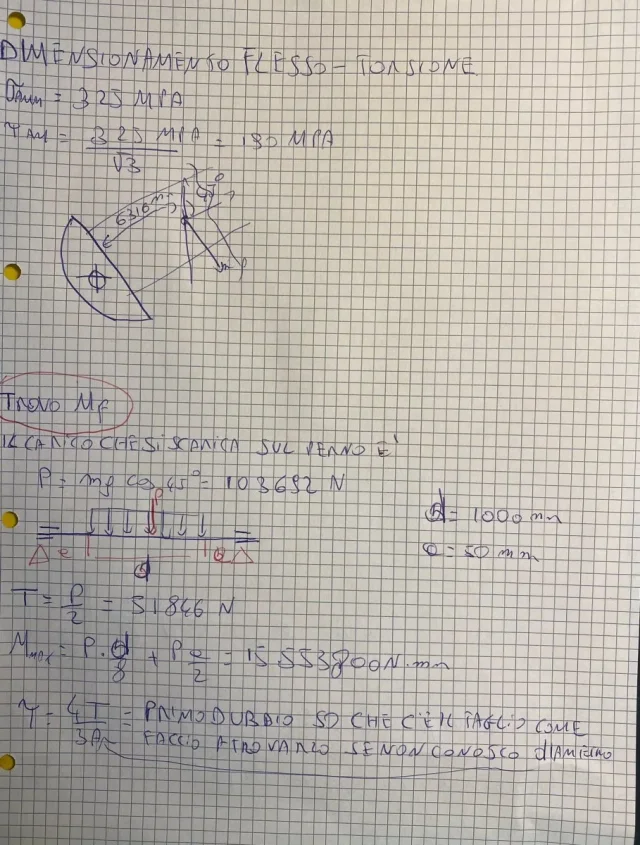 DIMENSIONAMENTO FLESSO-TORSIONE
σAMM = 325 MPA
τAM = 325 MPA / √3 = 190 MPA
6316 m
TROVO Mf
IL CARICO CHE SI SCARICA SUL PERNO E'
P = mg cos 45° = 103692 N
P
d = 1000 mm
e = 50 mm
e d e
T = P/2 = 51846 N
Mmax = P·d/8 + P e/2 = 15553800 N·mm
τ = 4T/3A = PRIMO DUBBIO SO CHE C'È IL TAGLIO COME
FACCIO A TROVARLO SE NON CONOSCO diAMETRO